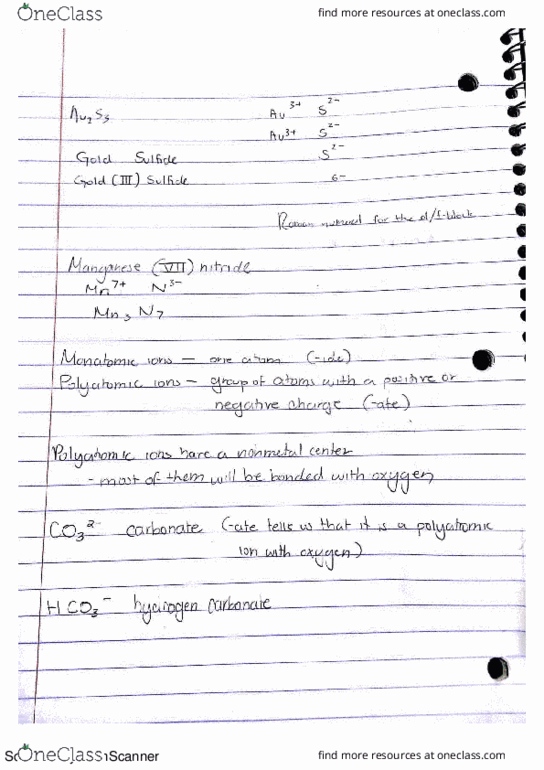 OneClass find more resources at oneclass.com
Au₂S₃ Au³⁺ S²⁻
Au³⁺ S²⁻
Gold Sulfide S²⁻
Gold (III) Sulfide 6⁻
Roman numeral for the d/f-block
Manganese (VII) nitride
Mn⁷⁺ N³⁻
Mn₃N₇
Monatomic ions — one atom (-ide)
Polyatomic ions — group of atoms with a positive or
negative charge (-ate)
Polyatomic ions have a nonmetal center
- most of them will be bonded with oxygen
CO₃²⁻ carbonate (-ate tells us that it is a polyatomic
ion with oxygen)
HCO₃⁻ hydrogen carbonate
OneClass Scanner find more resources at oneclass.com